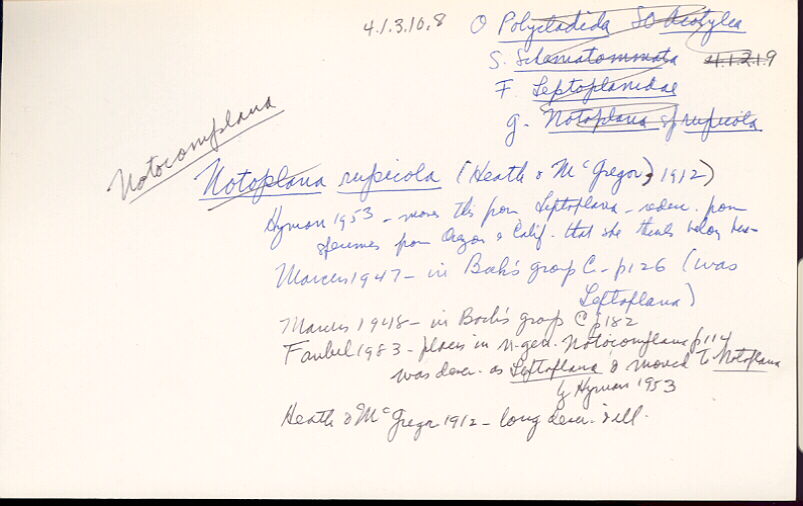 4.1.3.10.8 O Polycladida SO Acotylea
S. Schematommata 4.1.2.1.9
F. Leptoplanidae
g. Notoplana sp rupicola
Notocomplana
Notoplana rupicola (Heath & McGregor, 1912)
Hyman 1953 - moves this from Leptoplana - redesc. from
specimens from Oregon & Calif. that she thinks belong here
Marcus 1947 - in Bock's group C - p126 (was
Leptoplana)
Marcus 1948 - in Bock's group C p182
Faubel 1983 - places in n. gen. Notocomplana p114
was descr. as Leptoplana & moved to Notoplana
by Hyman 1953
Heath & McGregor 1912 - long descr. & ill.